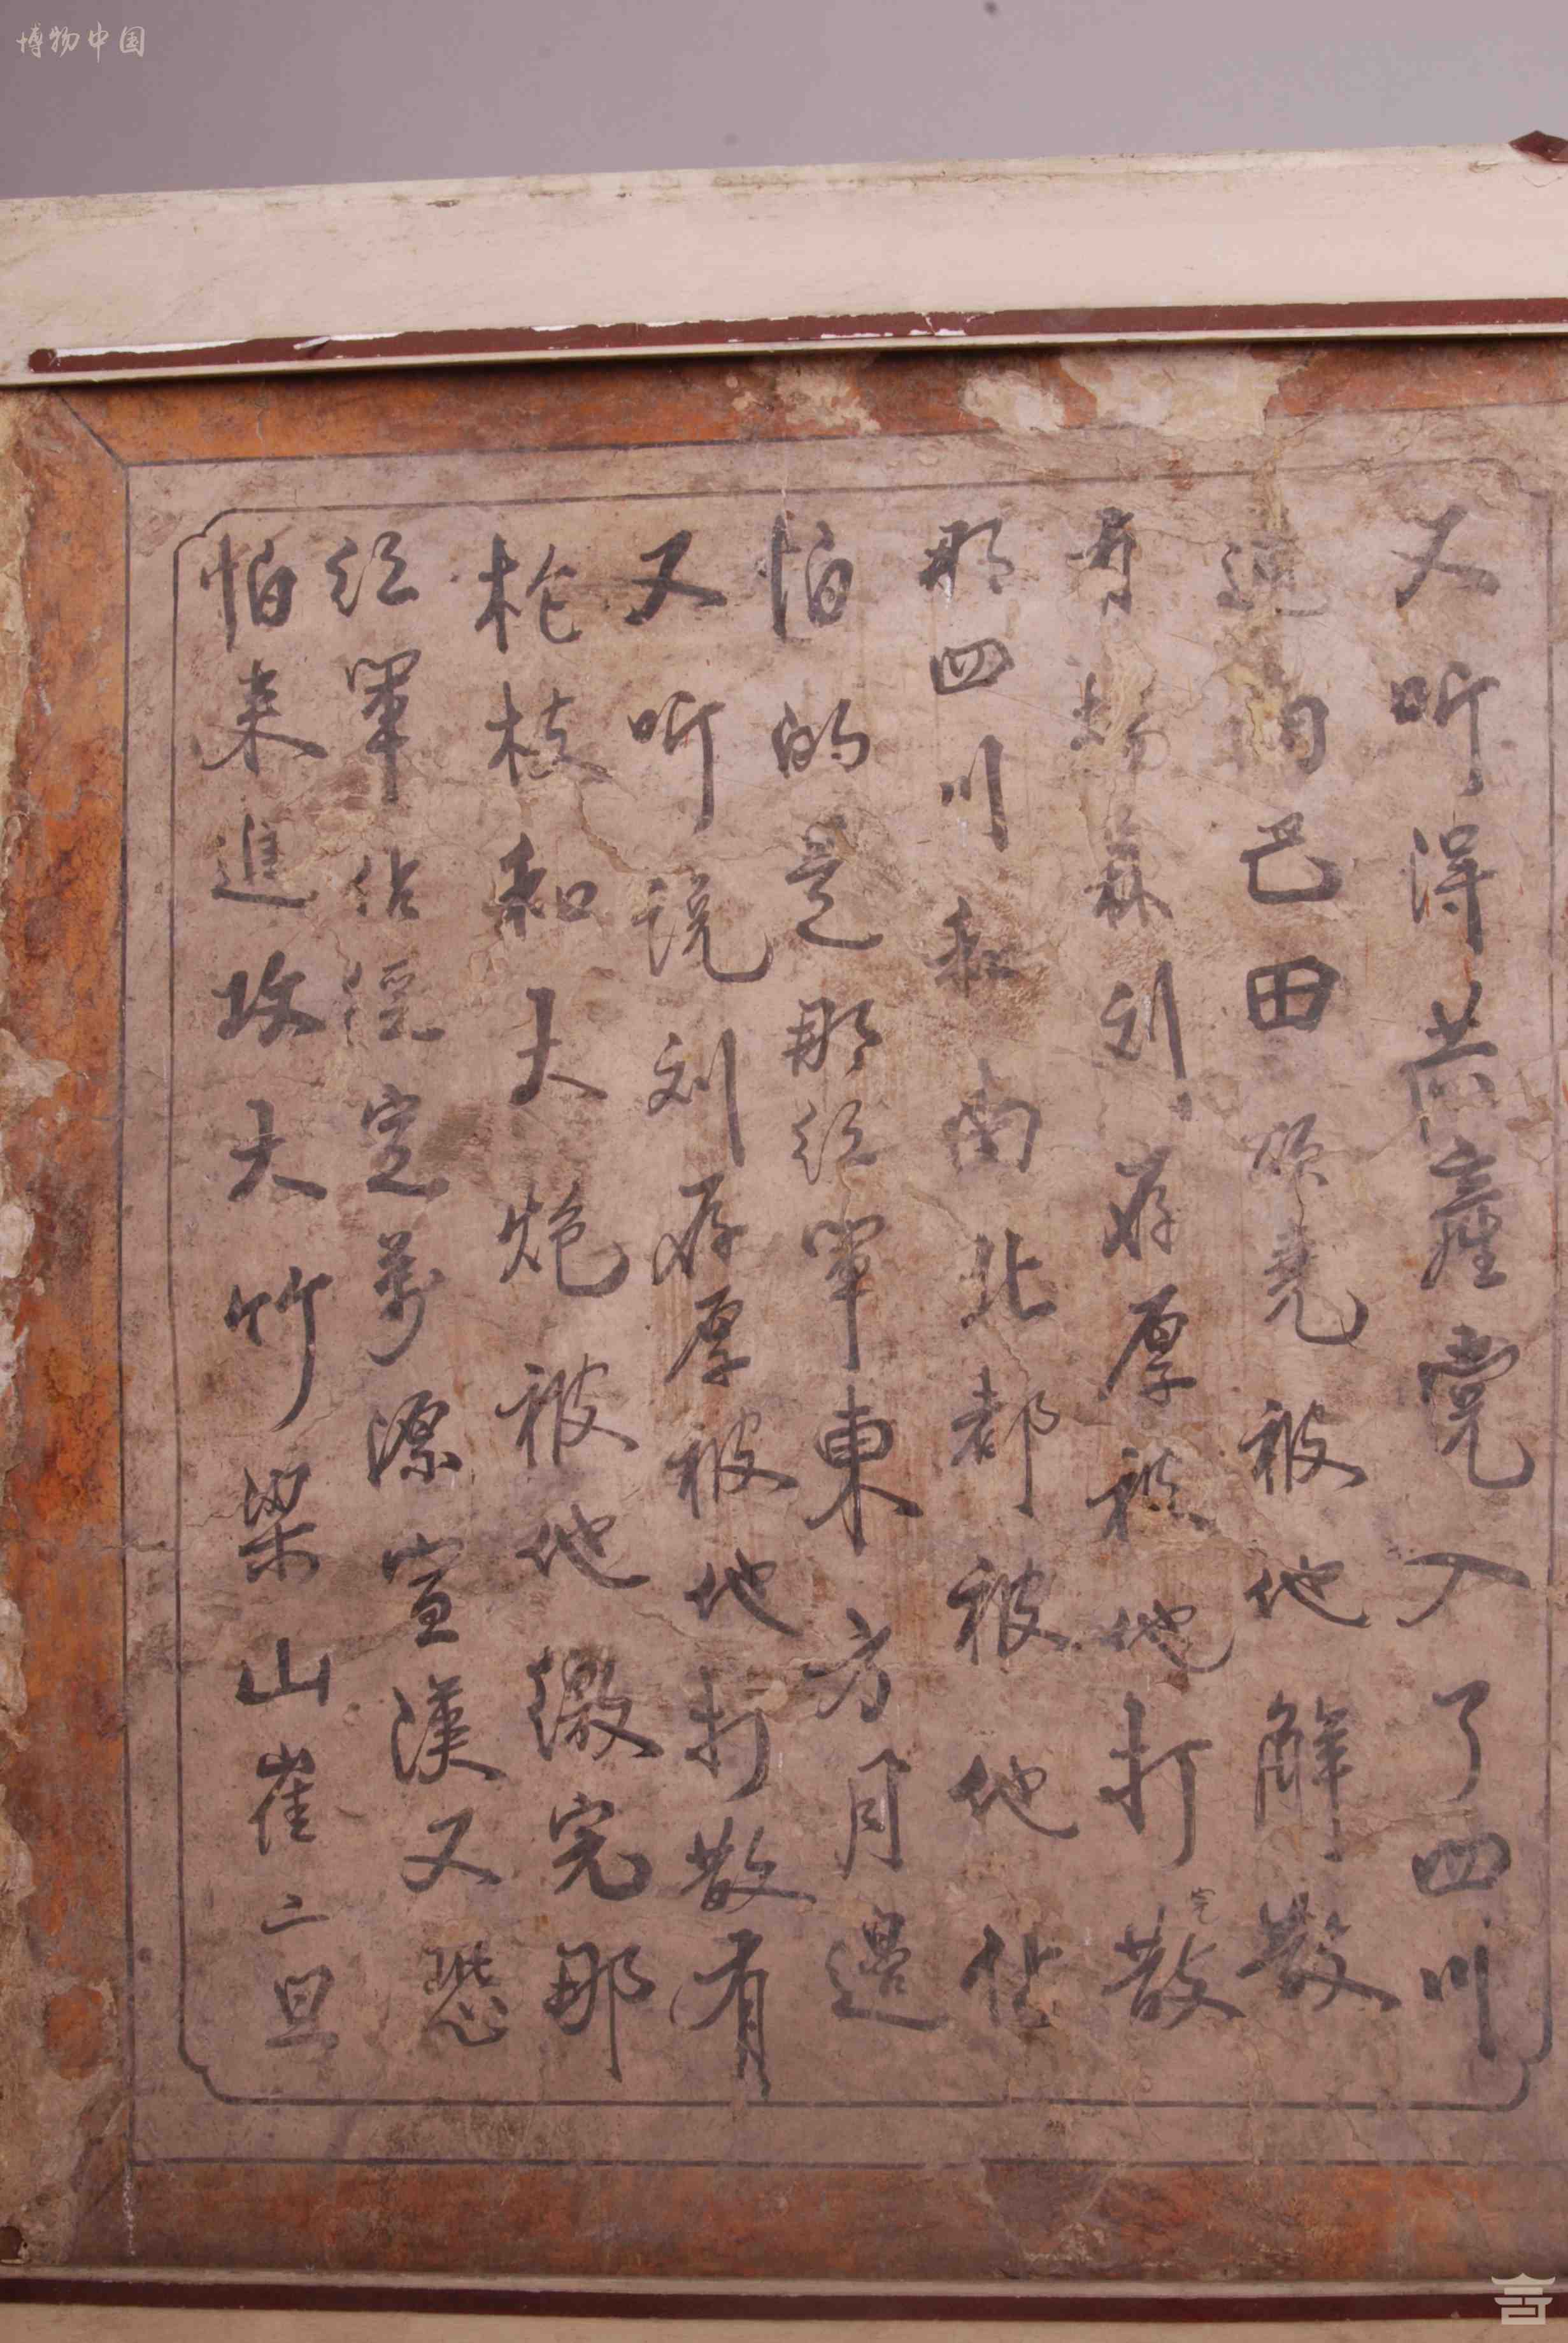 博物中国
又听得共產党入了四川
通南巴田頌堯被他解散
有楊森刘存厚被他打散完
那四川和南北都被他佔
怕的是那红軍東方月邉
又听说刘存厚被他打散有
枪枝和大炮被他缴完那
红軍佔绥定萬源宣漢又恐
怕来進攻大竹梁山崔二旦